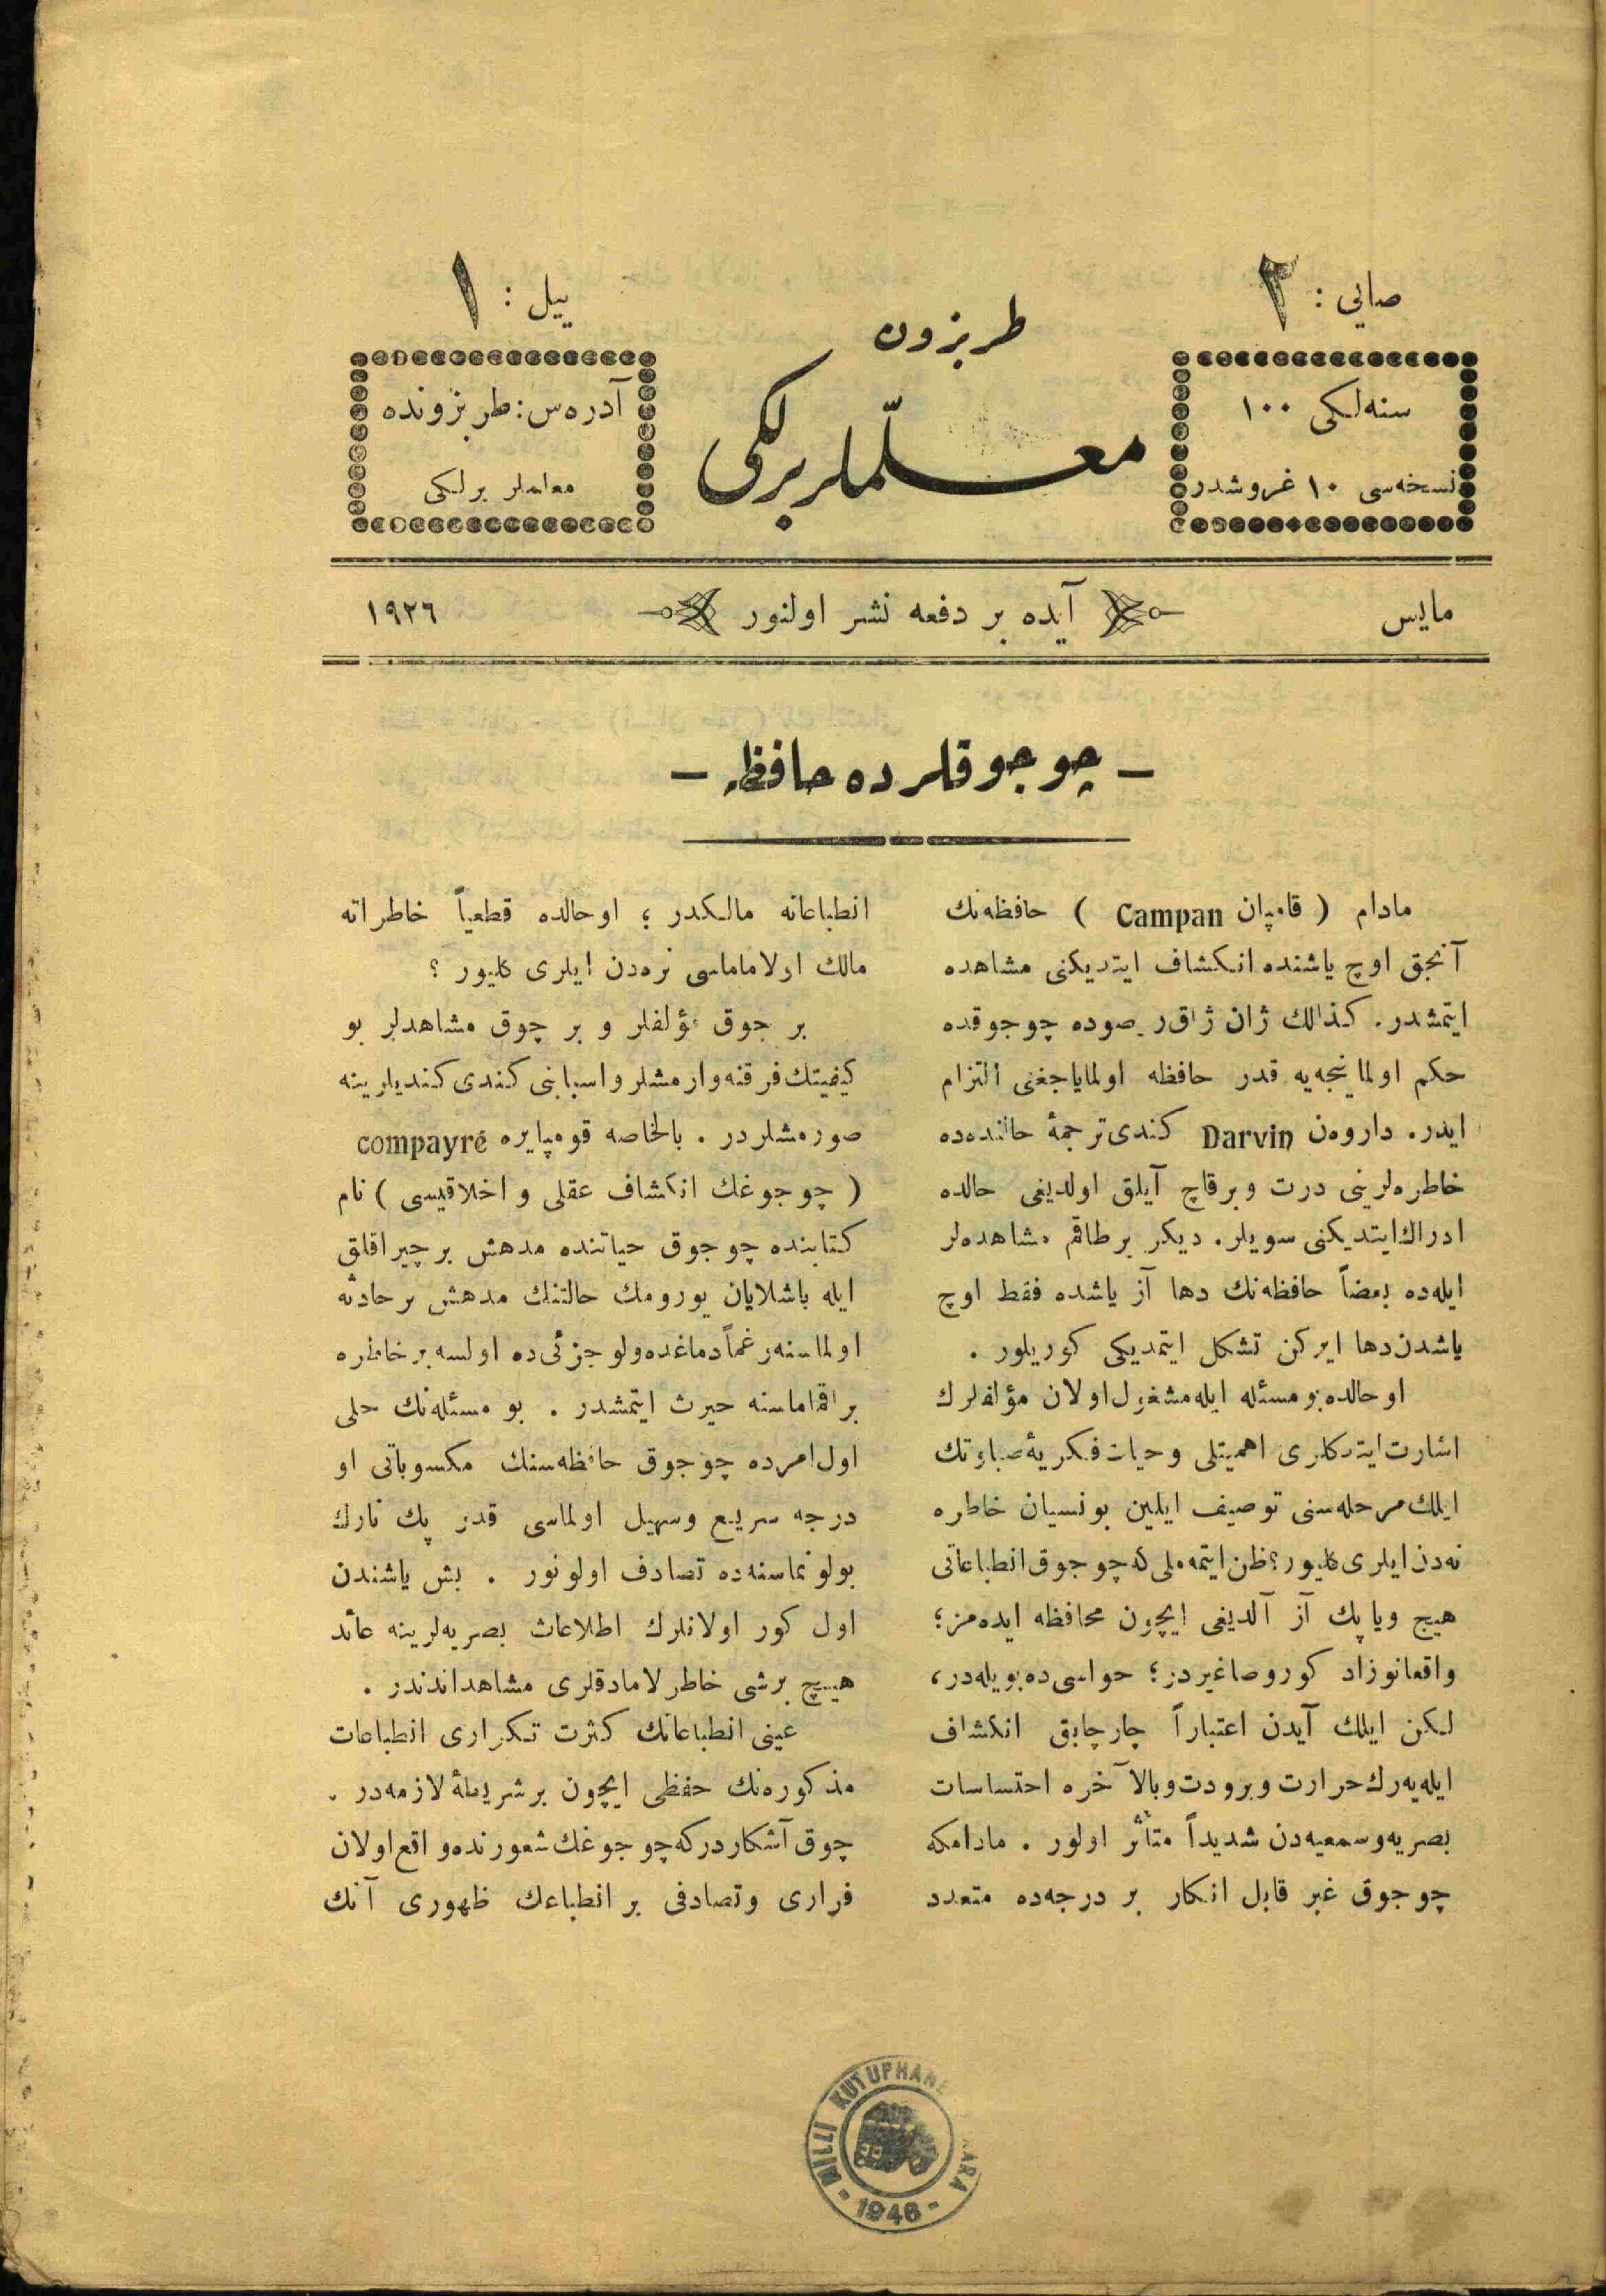 صایی : ٢
ییل : ١
طربزون
معلّملر برلكی
سنه‌لكی ١٠٠
نسخه‌سی ١٠ غروشدر
آدره‌س: طربزونده
معلملر برلكی
مایس
آیده بر دفعه نشر اولنور
١٩٢٦
— چوجوقلرده حافظه —
مادام ( قامپان Campan ) حافظه‌نك
آنجق اوچ یاشنده انكشاف ایتدیكنی مشاهده
ایتمشدر. كذالك ژان ژاق ر صوده چوجوقده
حكم اولمانجه‌یه قدر حافظه اولمایاجغنی التزام
ایدر. داروه‌ن Darvin كندی ترجمۀ حالنده‌ده
خاطره‌لرینی درت وبرقاچ آیلق اولدیغی حالده
ادراك ایتدیكنی سویلر. دیكر برطاقم مشاهده‌لر
ایله‌ده بعضاً حافظه‌نك دها آز یاشده فقط اوچ
یاشدن دها ایركن تشكل ایتمدیكی كوریلور .
اوحالده بو مسئله ایله مشغول اولان مؤلفلرك
اشارت ایتدكلری اهمیتلی وحیات فكریۀ صباوتك
ایلك مرحله‌سنی توصیف ایلین بونسیان خاطره
نه‌دن ایلری كلیور؟ ظن ایتمه‌ملی كه چوجوق انطباعاتی
هیچ ویا پك آز آلدیغی ایچون محافظه ایده‌مز؛
واقعا نوزاد كور وصاغیردر؛ حواسی ده بویله‌در،
لكن ایلك آیدن اعتباراً چارچابق انكشاف
ایله‌یه‌رك حرارت وبرودت وبالآخره احتساسات
بصریه وسمعیه‌دن شدیداً متأثر اولور . مادامكه
چوجوق غیر قابل انكار بر درجه‌ده متعدد
انطباعاته مالكدر ؛ اوحالده قطعیاً خاطراته
مالك اولاماماسی نره‌دن ایلری كلیور ؟
بر چوق مؤلفلر و بر چوق مشاهدلر بو
كیفیتك فرقنه وارمشلر واسبابنی كندی كندیلرینه
صورمشلردر . بالخاصه قومپایره compayré
( چوجوغك انكشاف عقلی و اخلاقیسی ) نام
كتابنده چوجوق حیاتنده مدهش برچیراقلق
ایله باشلایان یورومك حالتنك مدهش برحادثه
اولماسنه رغماً دماغده ولو جزئی ده اولسه برخاطره
براقماماسنه حیرت ایتمشدر . بو مسئله‌نك حلی
اول امرده چوجوق حافظه‌سنك مكسوباتی او
درجه سریع وسهیل اولماسی قدر پك نارك
بولونماسنه‌ده تصادف اولونور . بش یاشندن
اول كور اولانلرك اطلاعات بصریه‌لرینه عائد
هیچ برشی خاطرلامادقلری مشاهداتدندر .
عینی انطباعاتك كثرت تكراری انطباعات
مذكوره‌نك حفظی ایچون برشریطۀ لازمه‌در .
چوق آشكاردركه چوجوغك شعورنده واقع اولان
فراری وتصادفی بر انطباعك ظهوری آنك
MILLI KUTUPHANE
1946